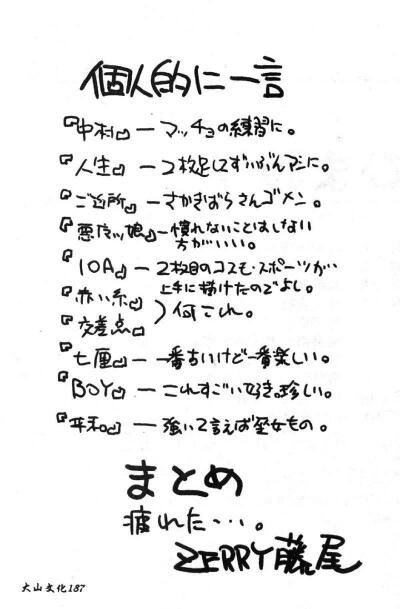 個人的に一言
『中村』— マッチョの練習に。
『人生』— 2枚足してずいぶんマシに。
『ご近所』— さかきばらさんゴメン。
『悪ガッ娘』— 慣れないことはしない
方がいいい。
『10A』— 2枚目のコスモ・スポーツが
上手に描けたのでよし。
『赤い糸』
『交差点』
何これ。
『七厘』— 一番古いけど一番楽しい。
『BOY』— これすごい好き。珍しい。
『平和。』— 強いて言えば至女もの。
まとめ
疲れた・・・。
ZERRY藤尾
大山文化187